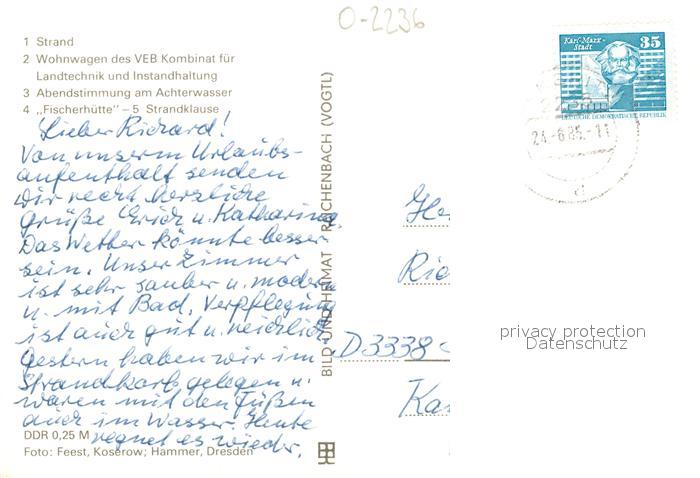 O-2236
1 Strand
2 Wohnwagen des VEB Kombinat für
Landtechnik und Instandhaltung
3 Abendstimmung am Achterwasser
4 „Fischerhütte" – 5 Strandklause
Lieber Richard!
Von unserm Urlaubs-
aufenthalt senden
wir recht herzliche
Grüße Erich u. Katharina.
Das Wetter könnte besser
sein. Unser Zimmer
ist sehr sauber u. modern
u. mit Bad. Verpflegung
ist auch gut u. reichlich
Gestern haben wir im
Strandkorb gelegen u.
waren mit den Füßen
auch im Wasser. Heute
regnet es wieder.
DDR 0,25 M
Foto: Feest, Koserow; Hammer, Dresden
BILD UND HEIMAT REICHENBACH (VOGTL)
Karl-Marx-
Stadt
35
DEUTSCHE DEMOKRATISCHE REPUBLIK
24.-6.85.-11
d
D3338
privacy protection
Datenschutz